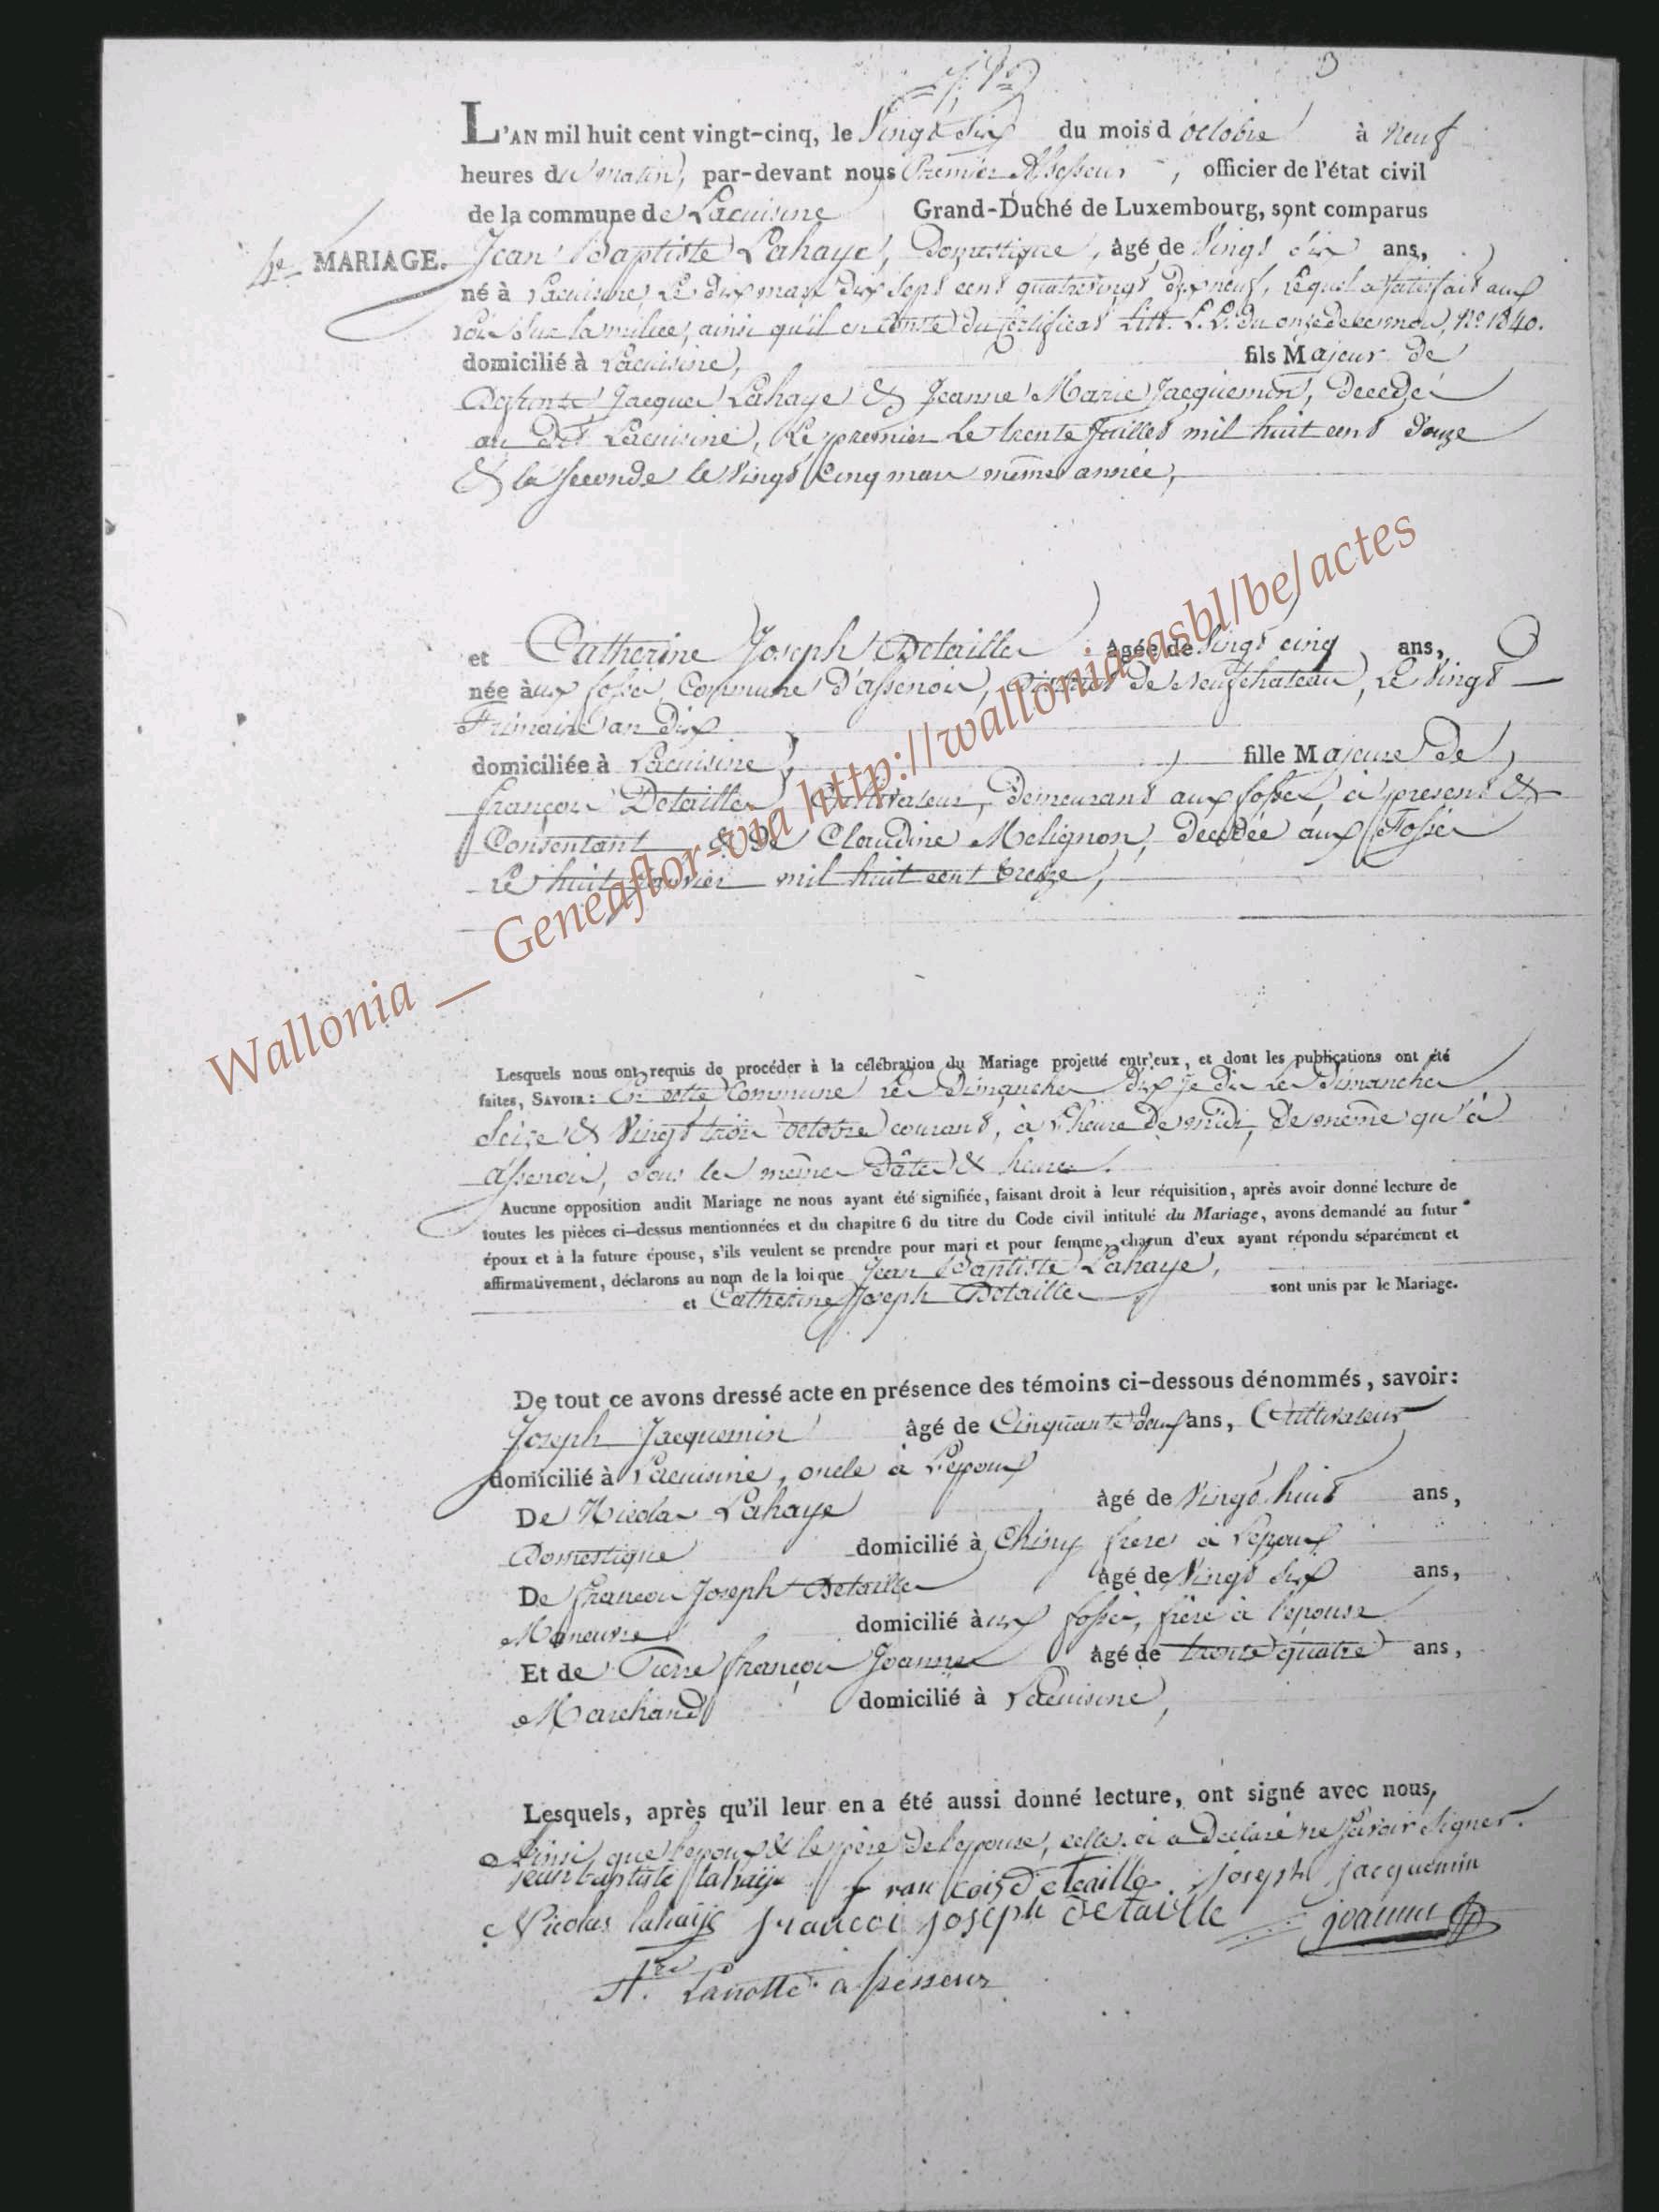 3
L'AN mil huit cent vingt-cinq, le Vingt Six du mois d'octobre à neuf
heures du matin, par-devant nous Premier Assesseur, officier de l'état civil
de la commune de Lacuisine Grand-Duché de Luxembourg, sont comparus
4e MARIAGE. Jean Baptiste Lahaye, Domestique, âgé de Vingt Six ans,
né à Lacuisine, Le dix mars dix Sept cent quatrevingt dix neuf, Lequel a satisfait aux
Lois sur la milice, ainsi qu'il en conste du Certificat Litt. L.L. du onze de ce mois, No. 1840.
domicilié à Lacuisine, fils Majeur de
Defunts Jacques Lahaye & Jeanne Marie Jacquemin, Decedés
au dit Lacuisine, Le premier Le trente Juillet mil huit cent douze
& la Seconde le Vingt Cinq mars même année,
et Catherine Joseph Detaille âgée de Vingt cinq ans,
née aux fossés, Commune d'assenois, District de Neufchateau, Le Vingt
Frimaire an Dix
domiciliée à Lacuisine, fille Majeure De
françois Detaille, Cultivateur, Demeurant aux fossés, à present &
Consentant & De Claudine Melignon, Decedée aux Fossés
Le huit Janvier mil huit cent treize,
Lesquels nous ont requis de procéder à la célébration du Mariage projetté entr'eux, et dont les publications ont été
faites, SAVOIR: En cette Commune Les Dimanches Les Dimanches
Seize & Vingt trois octobre courant, à L'heure De midi, De même qu'à
assenois, sous les mêmes Dâtes & heures.
Aucune opposition audit Mariage ne nous ayant été signifiée, faisant droit à leur réquisition, après avoir donné lecture de
toutes les pièces ci-dessus mentionnées et du chapitre 6 du titre du Code civil intitulé du Mariage, avons demandé au futur
époux et à la future épouse, s'ils veulent se prendre pour mari et pour femme, chacun d'eux ayant répondu séparément et
affirmativement, déclarons au nom de la loi que Jean Baptiste Lahaye,
et Catherine Joseph Detaille sont unis par le Mariage.
De tout ce avons dressé acte en présence des témoins ci-dessous dénommés, savoir:
Joseph Jacquemin âgé de Cinquante deux ans, Cultivateur
domicilié à Lacuisine, oncle à L'epoux
De Nicolas Lahaye âgé de Vingt huit ans,
Domestique domicilié à Chiny frere à L'epoux
De francois Joseph Detaille âgé de Vingt Six ans,
Maneuvre domicilié aux fossés, frère à l'epouse
Et de Pierre françois Joannes âgé de trente quatre ans,
Marchand domicilié à Lacuisine,
Lesquels, après qu'il leur en a été aussi donné lecture, ont signé avec nous,
Ainsi que l'epoux & le père De l'epouse, celle-ci a Declaré ne Savoir Signer.
Jean baptiste lahaije francois Detaille joseph jacquemin
Nicolas lahaije francoi joseph Detaille joannes
Lanotte assesseur
Wallonia __ Geneaflor-via http://wallonia-asbl/be/actes